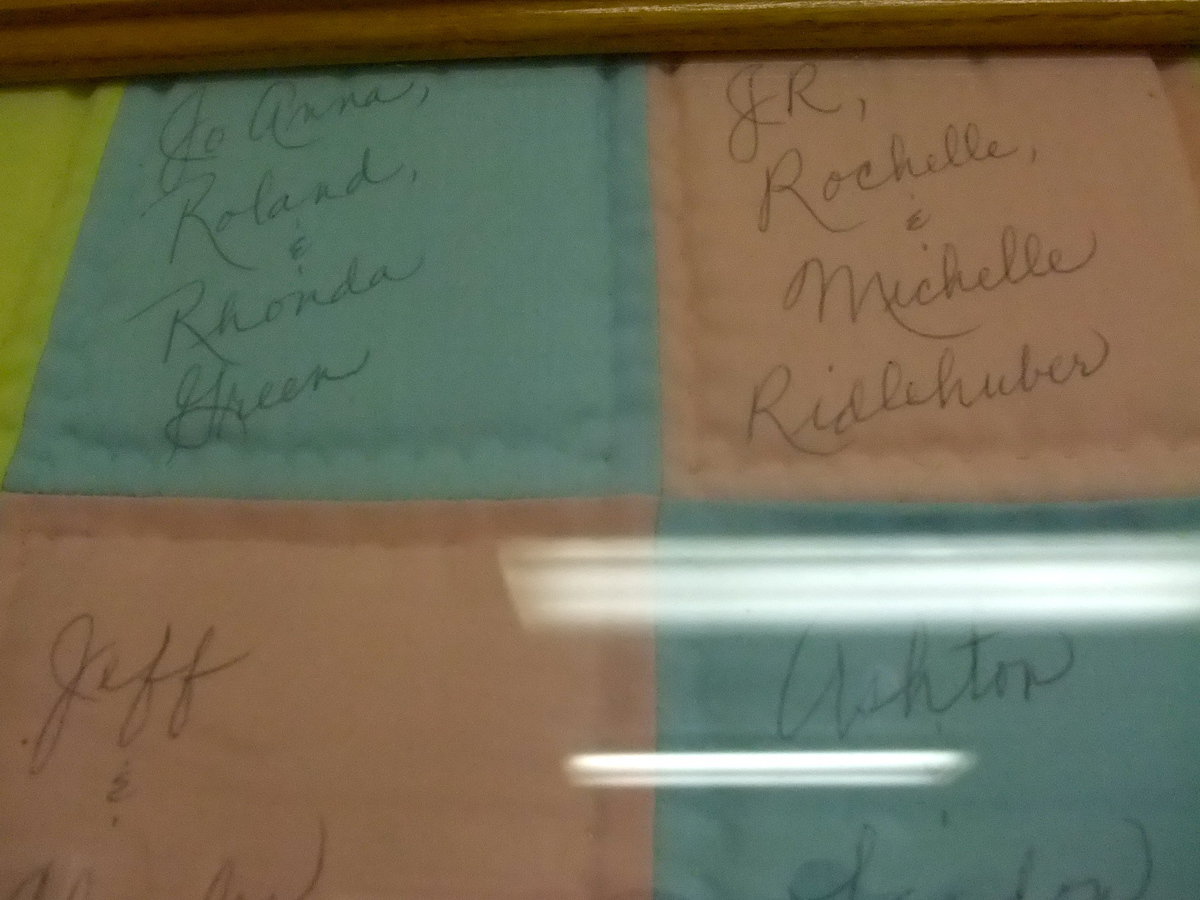 Jo Anna,
Roland,
&
Rhonda
Green
JR,
Rochelle,
&
Michelle
Ridlehuber
Jeff
&
Ashton